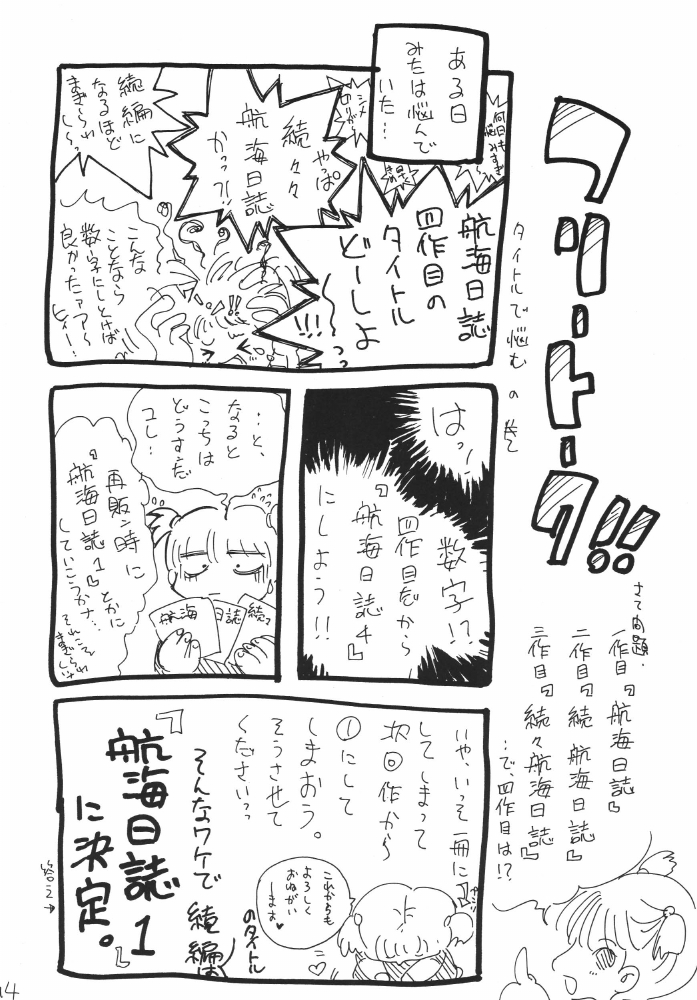 フリートーク!!
タイトルで悩むの巻
さて問題.
一作目『航海日誌』
二作目『続航海日誌』
三作目『続々航海日誌』
…で、四作目は!?
ある日
みたは悩んで
いた…
航海日誌
四作目の
タイトル
どーしよ
〜っっ
!!!
やっぱ
続々々
航海日誌
かっ?!!
続編に
なるほど
まぎらわ
しい〜
こんな
ことなら
数字にしとけば
良かったァァ〜
ヒィー!
はっ!
数字!?
四作目だから
『航海日誌4』
にしよう!!
…と、
なると
こっちは
どうすっだ
コレ…
航海
日誌
続々
再販ン時に
『航海日誌1』とかに
していこうかナ…
それこそ
まぎらしいナ
いや、いっそ一冊に
してしまって
次回作から
①にして
しまおう。
そうさせて
くださいっっ
そんなワケで続編は
のタイトル
『航海日誌1』
に決定。
これからも
よろしく
おねがい
しまーす♥
答え→
14